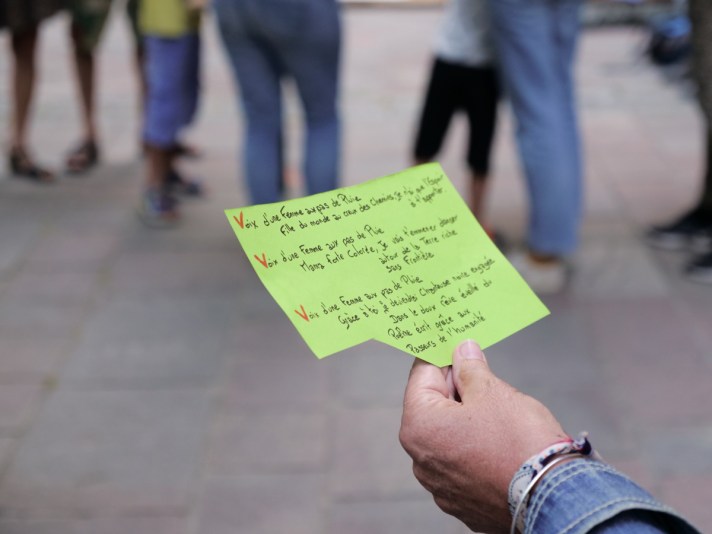 Voix d'une Femme aux pas de Pluie
Fille du monde au cœur des chemins, je n'ai que l'Espoir
à t'apporter
Voix d'une Femme aux pas de Pluie
Mama Carte Colorée, je vais t'emmener danser
autour de la Terre riche
sans Frontière
Voix d'une Femme aux pas de Pluie
Grâce à toi je deviendrai Chanteuse noire engagée
Dans le doux rêve éveillé du
Poème écrit grâce aux
Passeurs de l'humanité